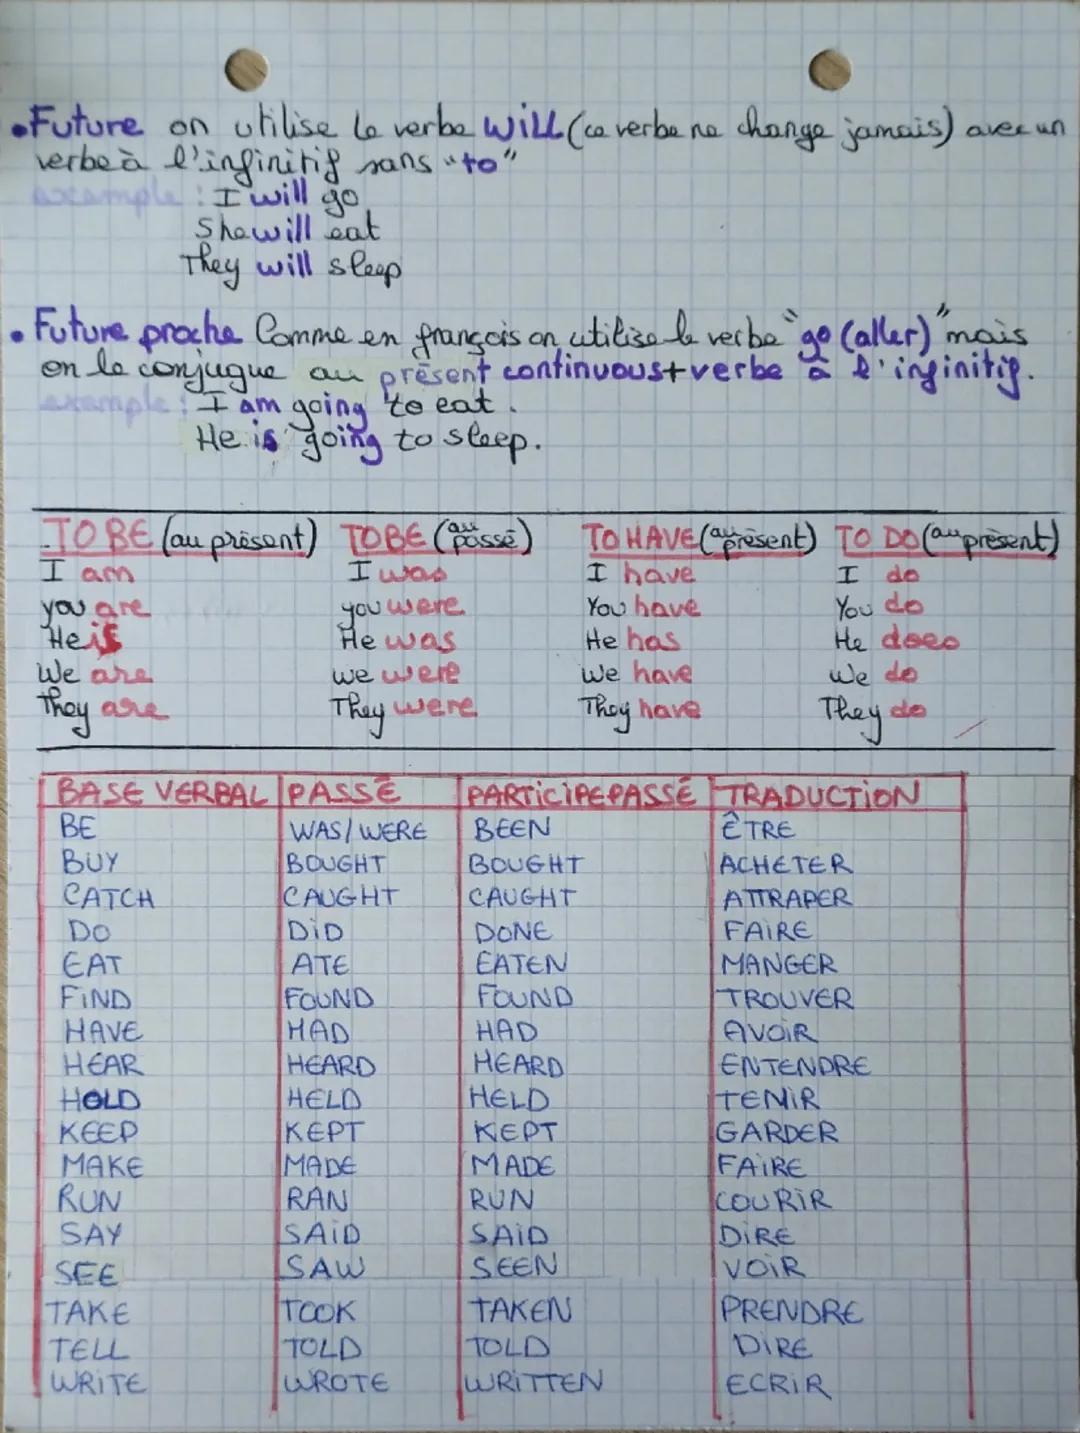 •Future on utilise le verbe will (ce verbe ne change jamais) avec un
verbe à l'infinitif sans "to"
example : I will go
She will eat
They will sleep
• Future proche Comme en français on utilise le verbe "go (aller)" mais
on le conjugue au présent continuous + verbe à l'infinitif.
example : I am going to eat.
He is going to sleep.
TO BE (au présent) TO BE (au passé) TO HAVE (au présent) TO DO (au présent)
I am I was I have I do
you are you were You have You do
He is He was He has He does
We are we were we have we do
They are They were They have They do
BASE VERBAL PASSÉ PARTICIPE PASSÉ TRADUCTION
BE WAS/WERE BEEN ÊTRE
BUY BOUGHT BOUGHT ACHETER
CATCH CAUGHT CAUGHT ATTRAPER
DO DID DONE FAIRE
EAT ATE EATEN MANGER
FIND FOUND FOUND TROUVER
HAVE HAD HAD AVOIR
HEAR HEARD HEARD ENTENDRE
HOLD HELD HELD TENIR
KEEP KEPT KEPT GARDER
MAKE MADE MADE FAIRE
RUN RAN RUN COURIR
SAY SAID SAID DIRE
SEE SAW SEEN VOIR
TAKE TOOK TAKEN PRENDRE
TELL TOLD TOLD DIRE
WRITE WROTE WRITTEN ECRIR